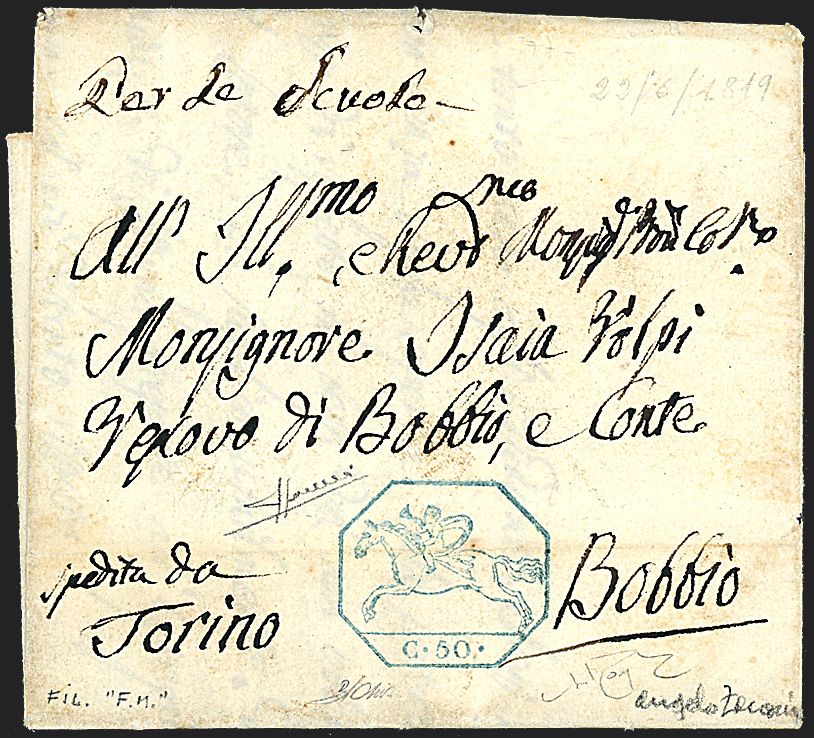 Per le Scuole
23/6/1819
All' Ill.mo, e Rev.mo
Monsignore Isaia Volpi
Vescovo di Bobbio, e Conte
spedita da
Torino
Bobbio
C. 50.
FIL. "F.M."
angelo